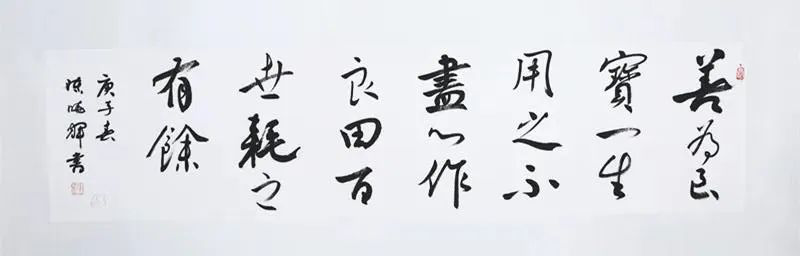 善為至
寶一生
用之不
盡心作
良田百
世耕之
有餘
庚子春
陳曉輝書